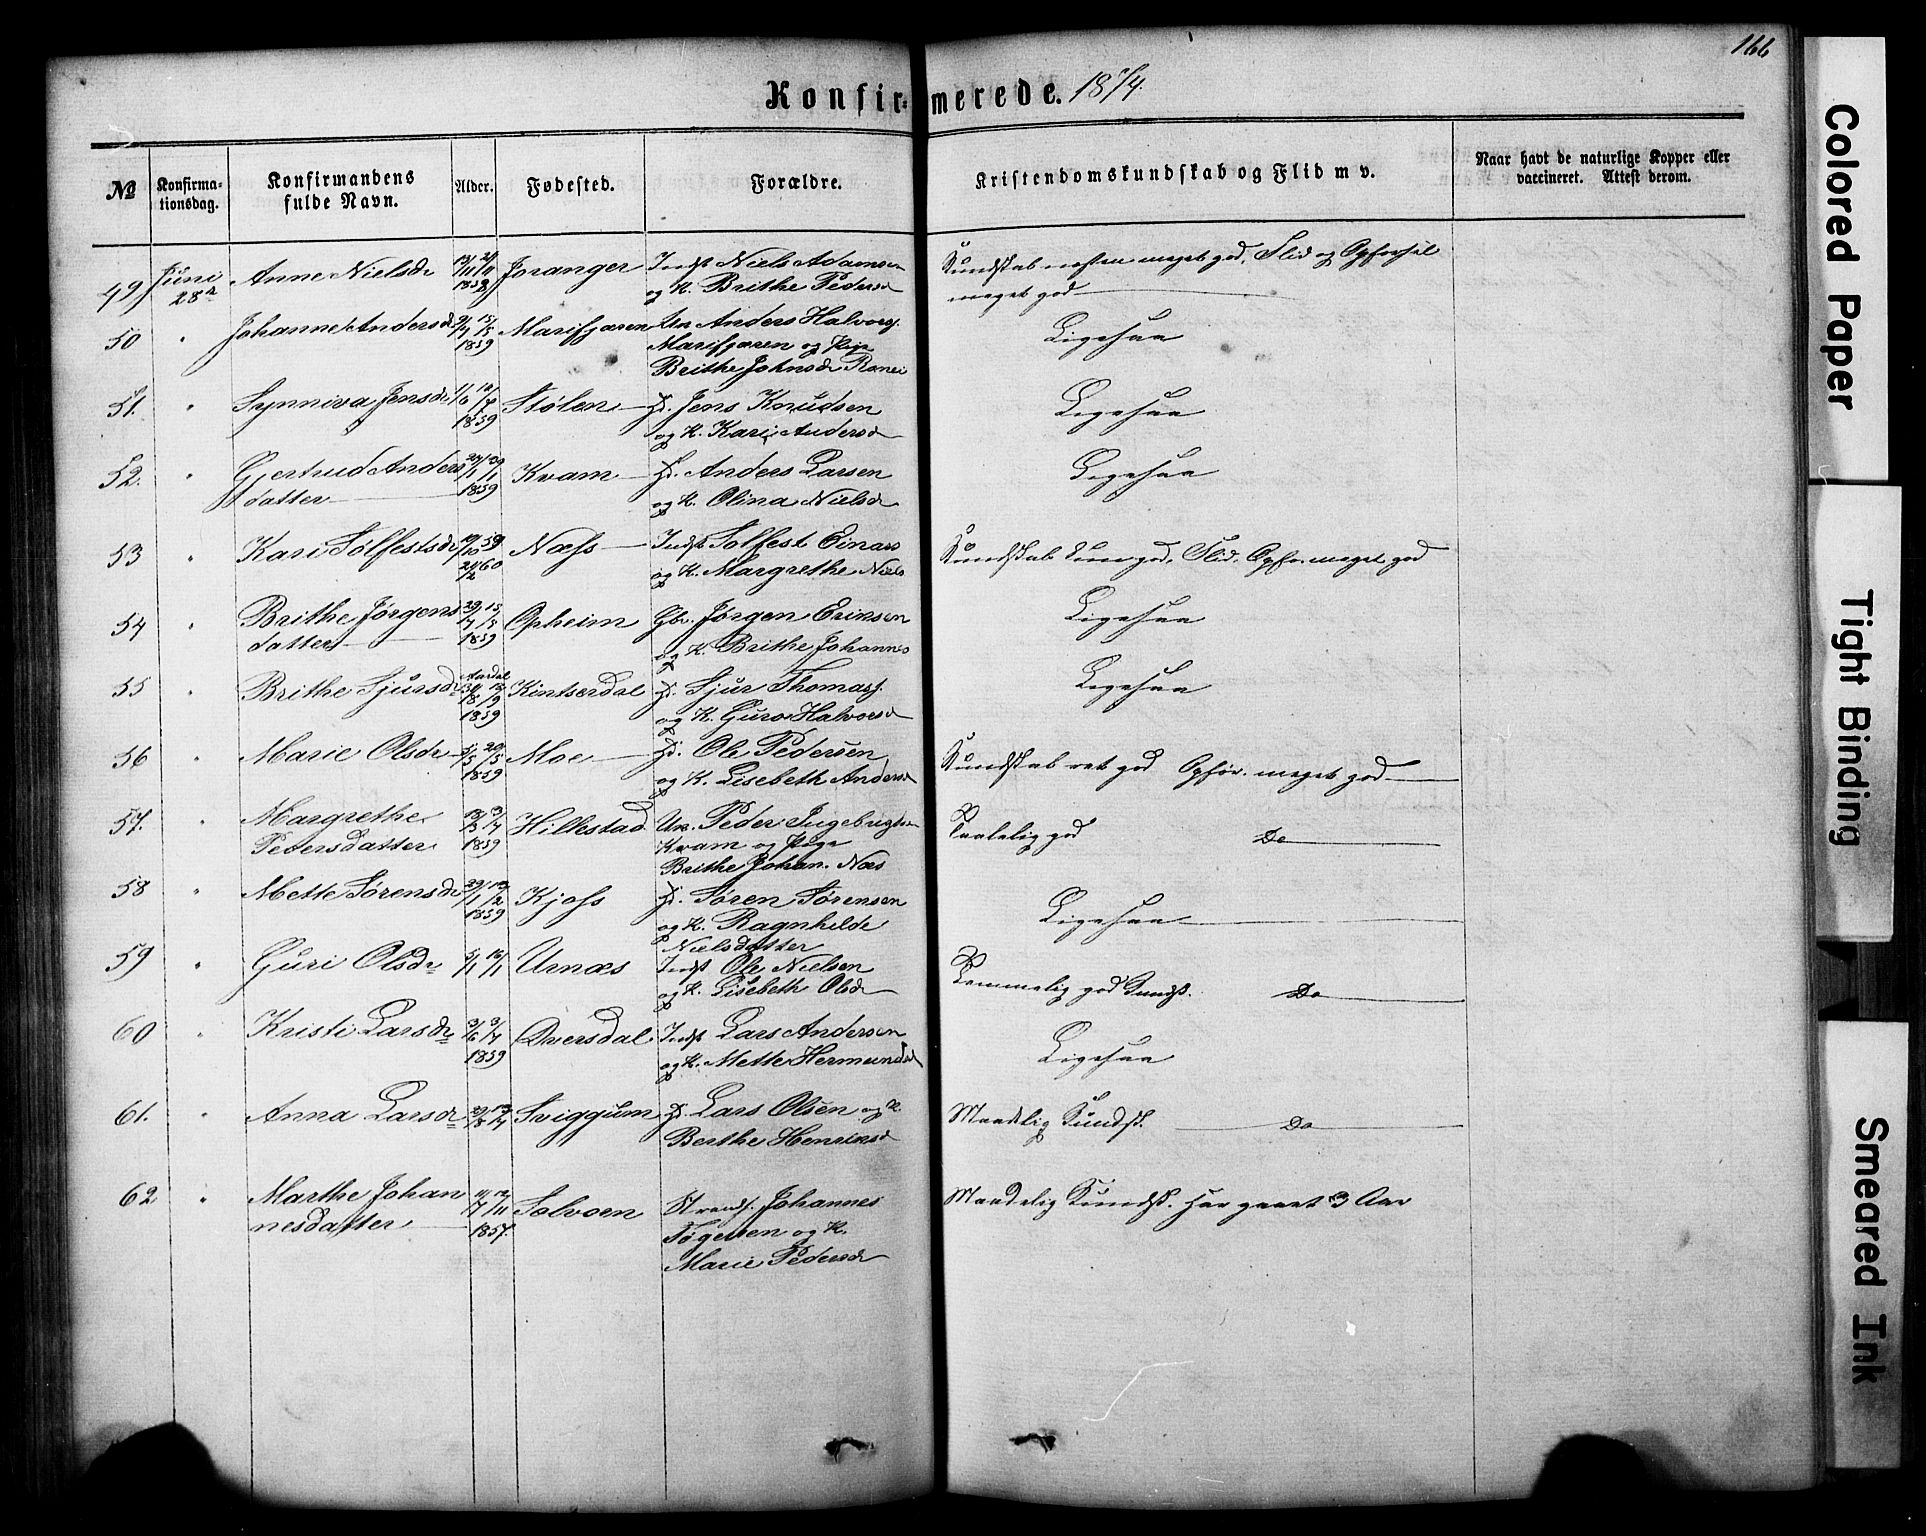 166
Konfirmerede. 1874.
№ Konfirma-tionsdag. Konfirmandens fulde Navn. Alder. Fødested. Forældre. Kristendomskundskab og Flid m v. Naar havt de naturlige Kopper eller vaccineret. Attest derom.
49 Juni 28de Anne Nielsdr 1858 Joranger Indst Niels Adamsen
og K. Brithe Pedersd
Kundskab næsten meget god, Flid og Opførsel
meget god
50 " Johanne Andersd 1859 Marifjæren Un Anders Halvors.
Marifjæren og Pige
Brithe Johnsd Ronei
Ligesaa
51. " Synniva Jensdr 1859 Stølen Hd. Jens Knudsen
og K. Kari Andersd
Ligesaa
52. " Gjertrud Anders
datter 1859 Kvam Hd. Anders Larsen
og K. Olina Nielsd
Ligesaa
53 " Kari Sølfestsdr Næss Indst Sølfest Einars
og K. Margrethe Niels
Kundskab god, Flid, Opfør. meget god
54 " Brithe Jørgens
datter 1859 Opheim Gbr. Jørgen Eriksen
og K. Brithe Johannes
Ligesaa
55 " Brithe Sjursdr Aardal 1859 Kinserdal Hd. Sjur Thomas.
og K. Guro Halvorsd
Ligesaa
56 " Marie Olsdr 5/5 20/5 1859 Moe Hd. Ole Pedersen
og K. Lisebeth Andersd
Kundskab ret god Opfør. meget god
57. " Margrethe
Pedersdatter 1859 Hillestad Un. Peder Ingebrigtsen
Kvam og Pige
Brithe Johan. Næs
Taalelig god Do
58 " Mette Sørensdr 1859 Kjoss Hd. Søren Sørensen
og K. Ragnhilde
Nielsdatter
Ligesaa
59 " Guri Olsdr Urnæs Indst Ole Nielsen
og K. Lisebeth Olsdr
Temmelig god Kundsk. Do
60 " Kristi Larsdr 1859 Dversdal Indst Lars Andersen
og K. Mette Hermundsd
Ligesaa
61. " Anna Larsdr Sviggum Hd. Lars Olsen og K.
Berthe Henriksd
Maadelig Kundsk. Do
62 " Marthe Johan
nesdatter 1857. Solvoen Strands. Johannes
Tøgersen og K.
Marie Pedersdr
Maadelig Kundsk. Har gaaet 3 Aar
Colored Paper
Tight Binding
Smeared Ink